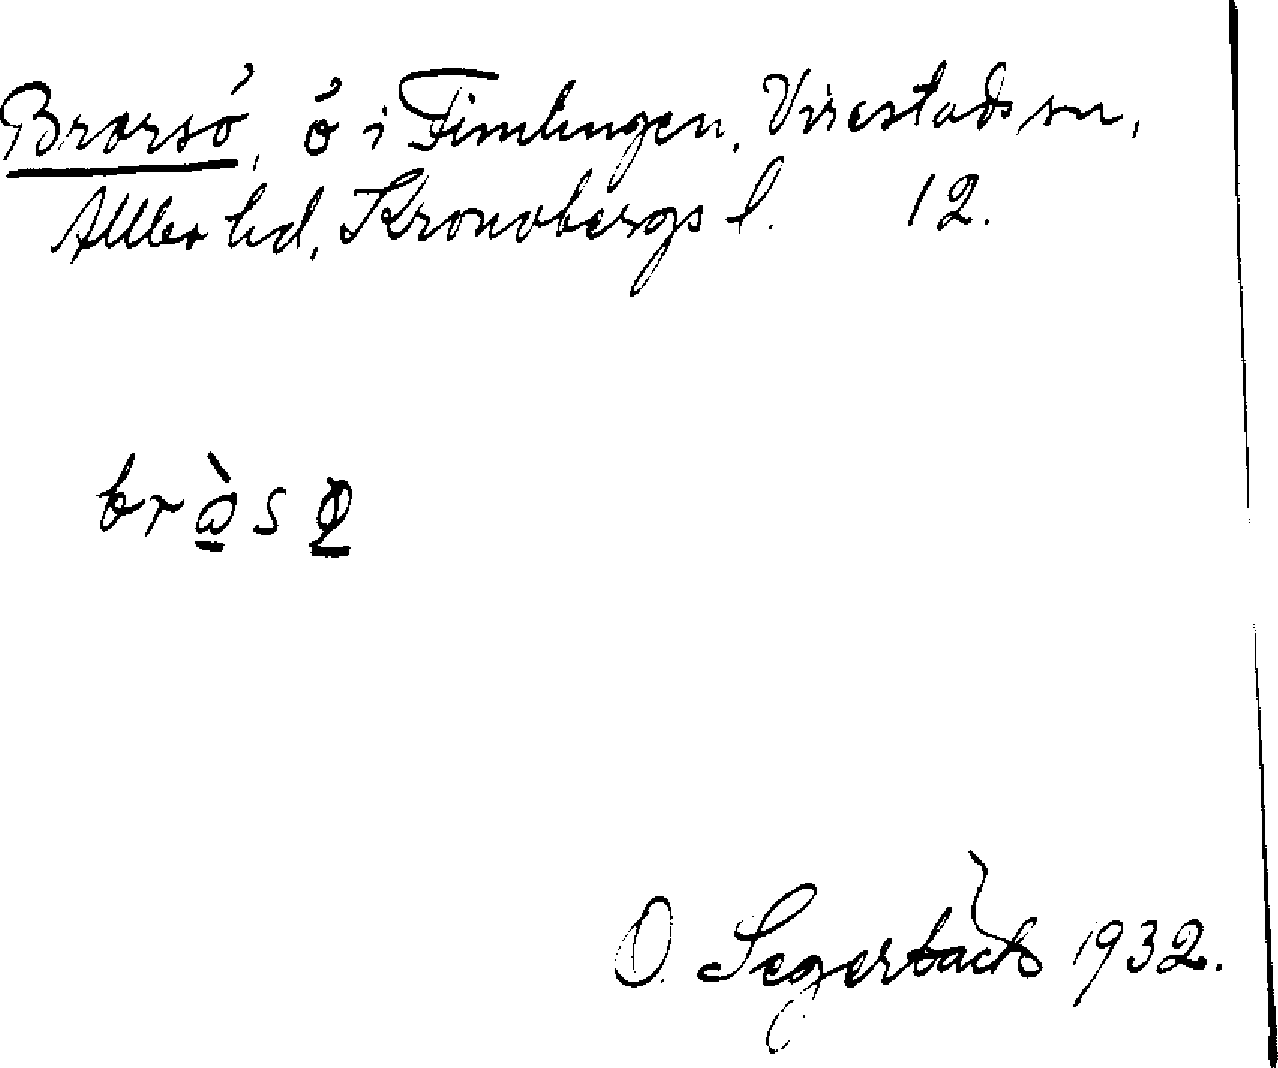 Brorsö, ö i Femlingen, Virestads sn,
Allbo hd, Kronobergs l. 12.
bràsø
O. Segerbäck 1932.